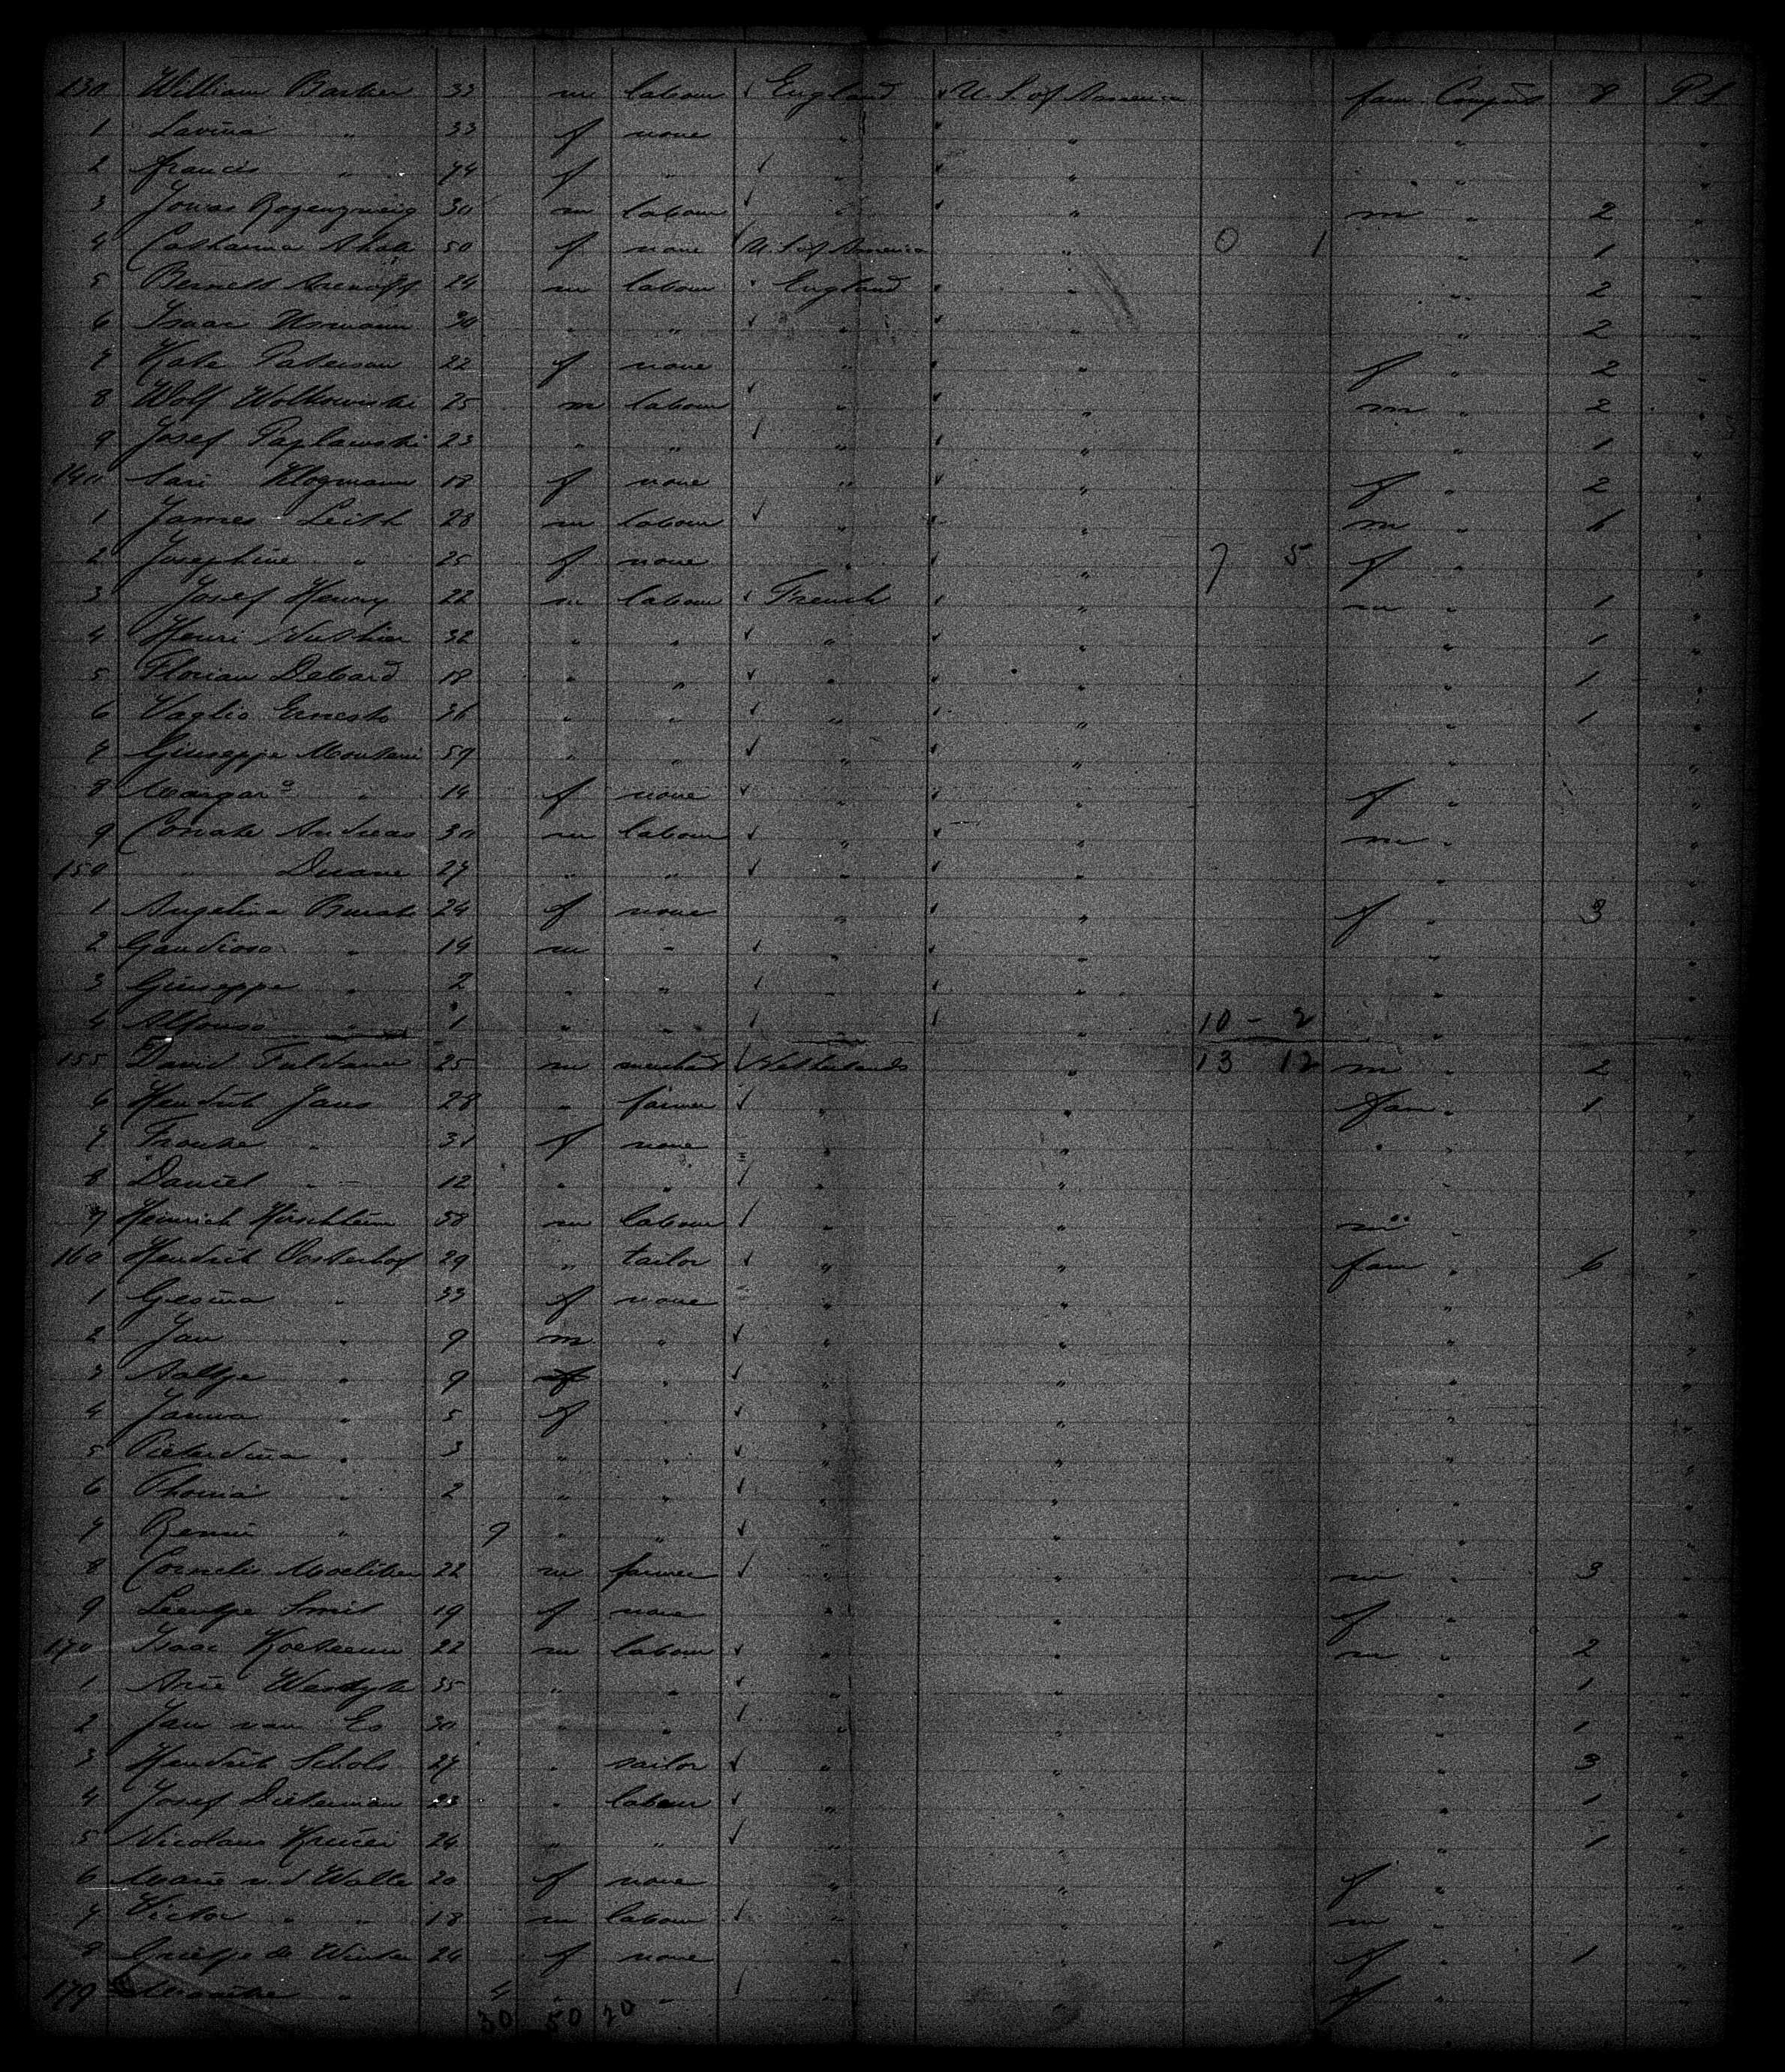 130 William Barker 33 m labour England U. S. of America fam Compart 8 P S
1 Lavina " 33 f none " " " "
2 Francis " 74 f " " " " "
3 Jonas Rozenzweig 30 m labour " " m " 2 "
4 Catharina 50 f none U. S. of America " 0 1 " 1 "
5 Bernett 24 m labour England " " 2 "
6 Isaac 30 " " " " " 2 "
7 Kate Paterson 22 f none " " f " 2 "
8 Wolf Wolkowiski 25 m labour " " m " 2 "
9 Josef Paplawski 23 " " " " " 1 "
140 Sari Klogmann 18 f none " " f " 2 "
1 James Leith 28 m labour " " m " 1 "
2 Josephine " 25 f none " " 7 5 f " "
3 Josef Henry 22 m labour French " m " 1 "
4 Henri 32 " " " " " 1 "
5 Florian Debard 18 " " " " " 1 "
6 Vaglio Ernesto 36 " " " " " 1 "
7 Giuseppe Montani 59 " " " " " "
8 Margar a " 14 f none " " f " "
9 Andreas 30 m labour " " m " "
150 " 27 " " " " " "
1 Angelina 24 f none " " f " 3 "
2 Gaudioso " 14 m " " " " "
3 Giuseppe " 2 " " " " " "
4 Alfonso " 1 " " " " 10 - 2 " "
155 David 25 m merchant Netherlands " 13 12 m " 2 "
6 Hendrik Jans 28 " farmer " " fam " 1 "
7 Frouke " 31 f none " " " " "
8 Daniel " 12 " " " " "
9 Heinrich 58 m labour " " m " "
160 Hendrik Oosterhof 29 " tailor " " fam " 6 "
1 Gesina " 33 f none " " " "
2 Jan " 9 m " " " " "
3 Aaltje " 9 f " " " " "
4 Janna " 5 f " " " " "
5 Pieterdina " 3 " " " " " "
6 " 2 " " " " " "
7 " 9 " " " " " "
8 Cornelis 22 m farmer " " m " 3 "
9 Leentje Smit 19 f none " " f " "
170 Isaac 22 m labour " " m " 2 "
1 Arie 35 " " " " " 1 "
2 Jan van Es 30 " " " " " 1 "
3 Hendrik Schols 27 " sailor " " " 3 "
4 Josef Dieterman 23 " labour " " " 1 "
5 Nicolaus 24 " " " " " 1 "
6 Marie v. d Walle 20 f none " " f " "
7 Victor " " 18 m labour " " m " "
8 Grietje de Winter 24 f none " " f " 1 "
179 " 4 " " " " f " "
30 50 20